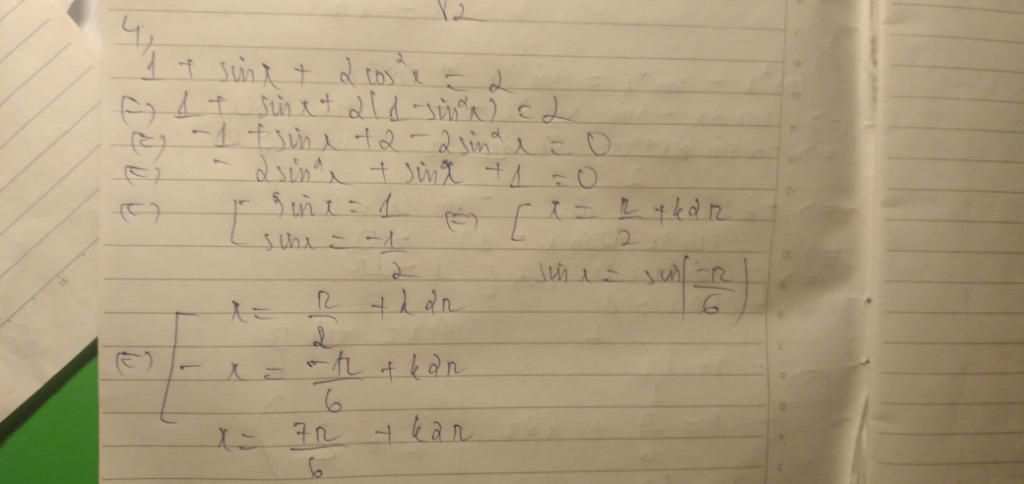 √2
4,
1 + sinx + 2cos²x = 2
(=) 1 + sinx + 2(1 - sin²x) = 2
(=) -1 + sinx + 2 - 2sin²x = 0
(=) - 2sin²x + sinx + 1 = 0
(=) [ sinx = 1 (=) [ x = π/2 + k2π
sinx = -1/2 sinx = sin(-π/6)
x = π/2 + k2π
(=) [ - x = -π/6 + k2π
x = 7π/6 + k2π